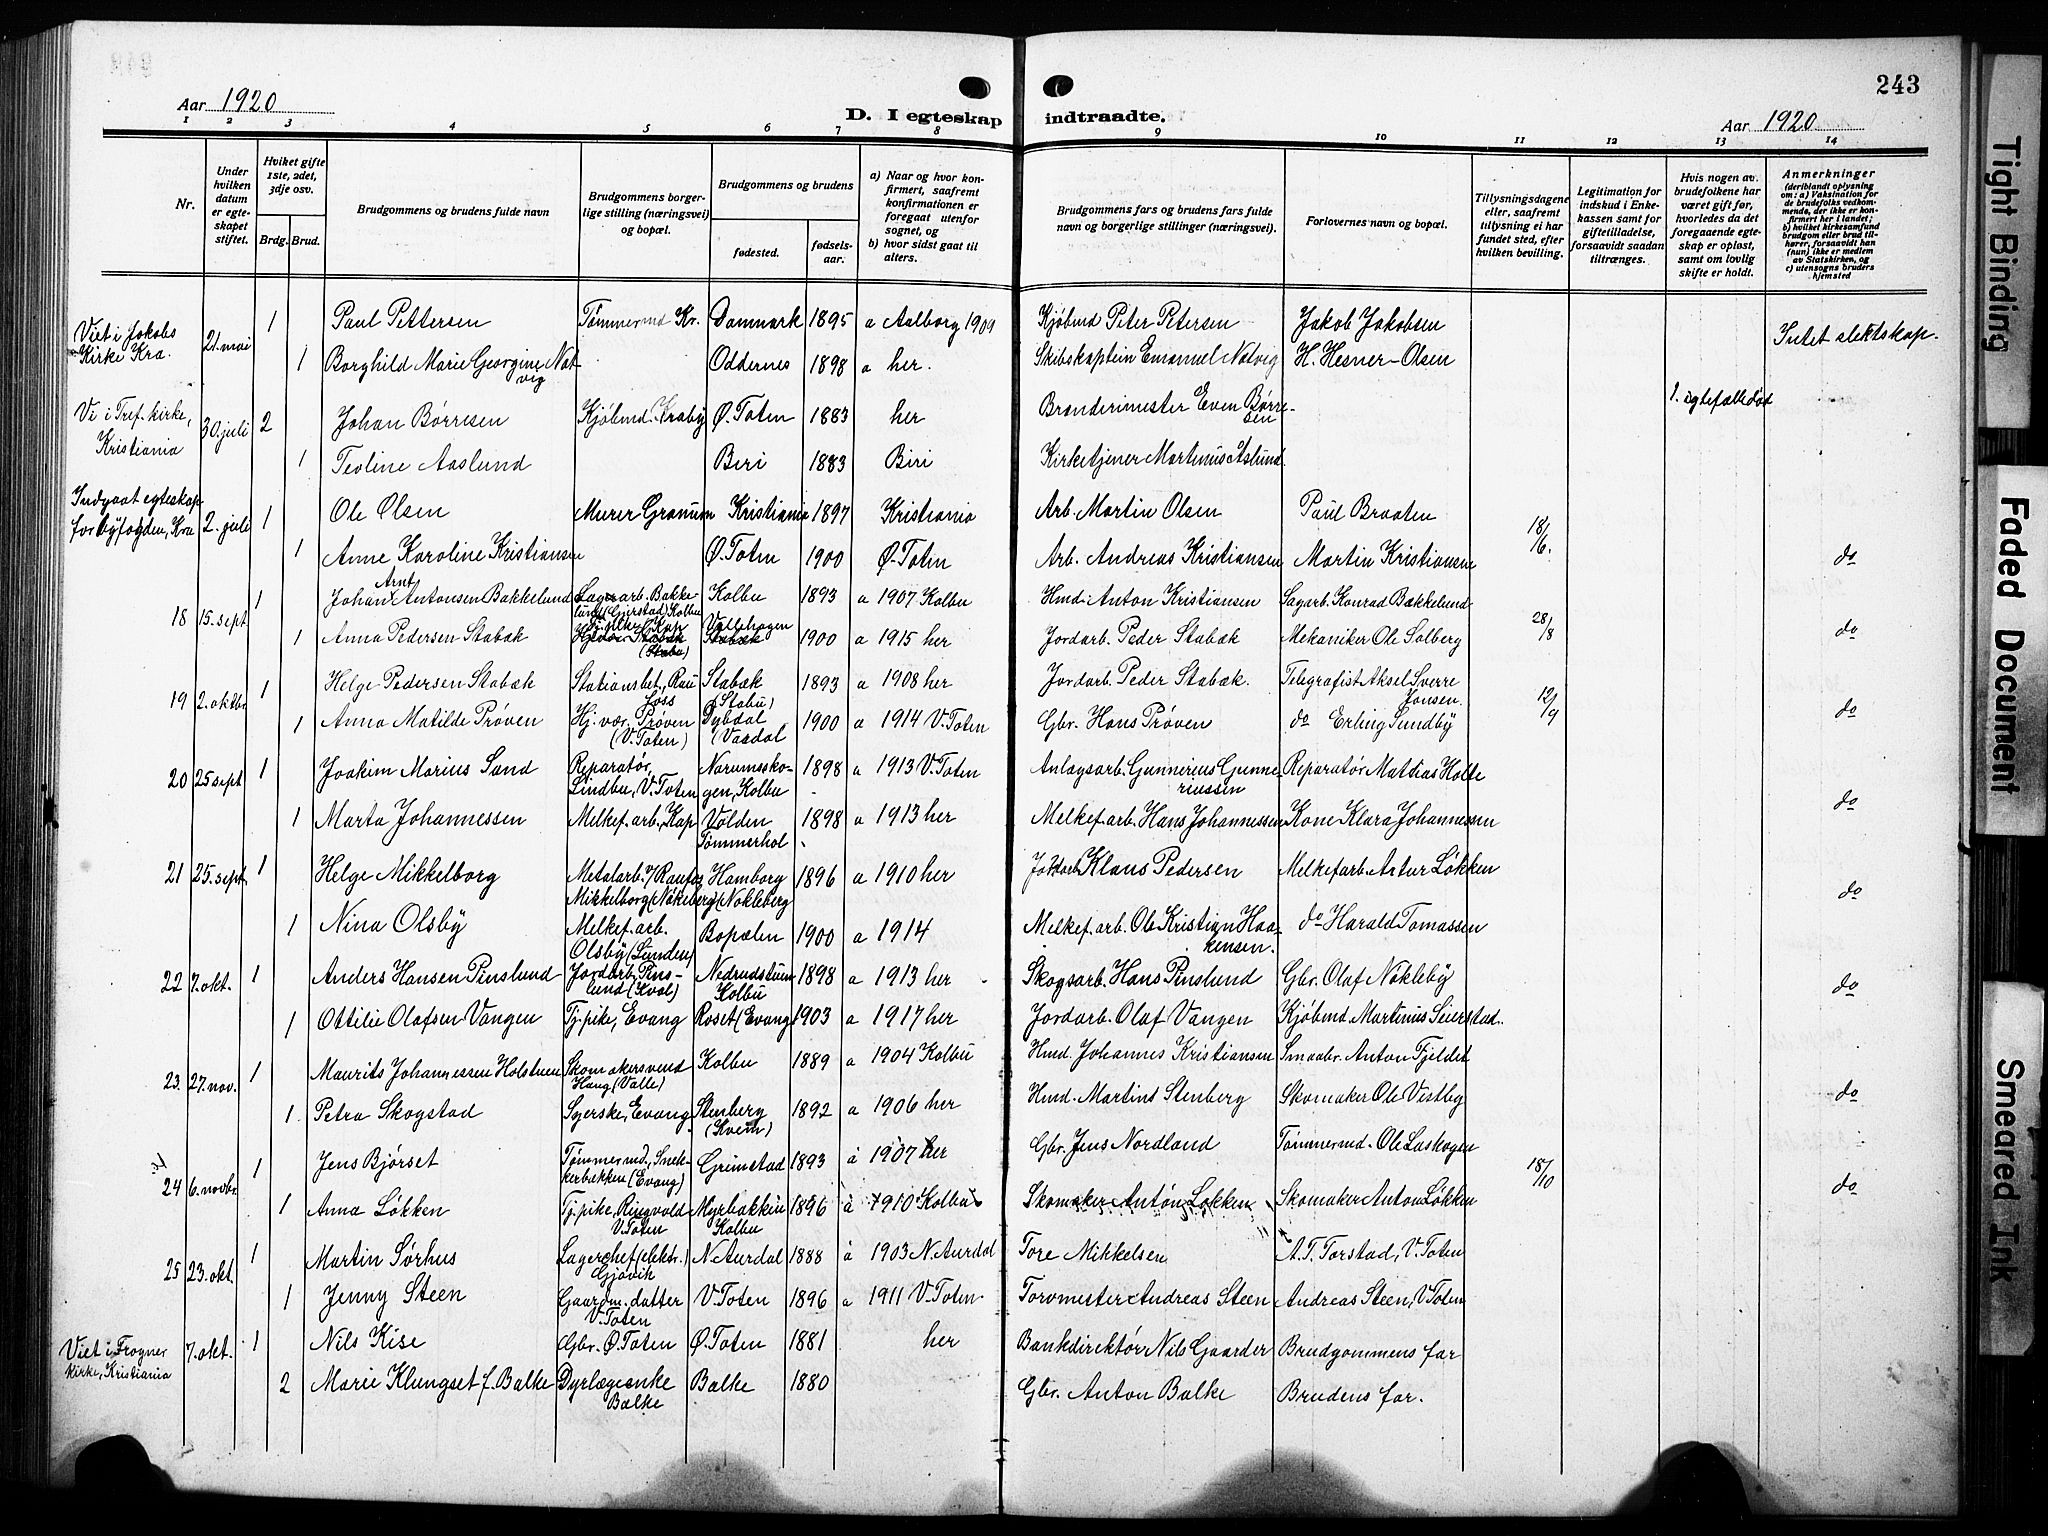 243
Aar 1920
D. I egteskap indtraadte.
Aar 1920
1 2 3 4 5 6 7 8 9 10 11 12 13 14
Nr.
Under hvilken datum er egteskapet stiftet.
Hviket gifte 1ste, 2det, 3dje osv.
Brdg. Brud.
Brudgommens og brudens fulde navn
Brudgommens borgerlige stilling (næringsvei) og bopæl.
Brudgommens og brudens
fødested. fødselsaar.
a) Naar og hvor konfirmert, saafremt konfirmationen er foregaat utenfor sognet, og
b) hvor sidst gaat til alters.
Brudgommens fars og brudens fars fulde navn og borgerlige stillinger (næringsvei).
Forlovernes navn og bopæl.
Tillysningsdagene eller, saafremt tillysning ei har fundet sted, efter hvilken bevilling.
Legitimation for indskud i Enkekassen samt for giftetilladelse, forsaavidt saadan tiltrænges.
Hvis nogen av brudefolkene har været gift før, hvorledes da det foregaaende egteskap er opløst, samt om lovlig skifte er holdt.
Anmerkninger
(deriblandt oplysning om: a) Vaksination for de brudefolks vedkommende, der ikke er konfirmert her i landet; b) hvilket kirkesamfund brudgom eller brud tilhører, forsaavidt han (hun) ikke er medlem av Statskirken, og c) utensogns bruders hjemsted
Viet i Jakobs Kirke Kra. 21. mai 1 Paul Pettersen Tømmermd Kr. Danmark 1895 a Aalborg 1909 Kjøbmd Peter Petersen Jakob Jakobsen Intet slektskap.
1 Borghild Marie Georgine Natvig Oddernes 1898 a her. Skibskaptein Emanuel Natvig H. Hesner-Olsen
Vi i Tref. kirke, Kristiania 30. juli 2 Johan Børresen Kjøbmd. Kraby Ø. Toten 1883 her Brænderimester Even Børresen 1. egtefælle død
1 Teoline Aaslund Biri 1883 Biri Kirketjener Martinus Aslund
Indgaat egteskap for byfogden, Kra 2. juli 1 Ole Olsen Murer Granum Kristiania 1897 Kristiania Arb. Martin Olsen Paul Braaten 18/6.
1 Anne Karoline Kristiansen Ø. Toten 1900 Ø. Toten Arb. Andreas Kristiansen Martin Kristiansen do
18 15. sept 1 Johan Arnt Antonsen Bakkelund Lagerarb. Bakkelund (Gjerstad) Kolbu Kolbu 1893 a 1907 Kolbu Hmd. Anton Kristiansen Sagarb. Konrad Bækkelund 28/8
1 Anna Pedersen Stabæk Stabæk (Stabu) Vallehagen Stabæk 1900 a 1915 her Jordarb. Peder Stabæk Mekaniker Ole Solberg do
19 2. oktbr. 1 Helge Pedersen Stabæk Stationsbet., Raufoss Stabæk (Stabu) 1893 a 1908 her Jordarb. Peder Stabæk. Telegrafist Aksel Sverre Jonsen. 12/9
1 Anna Matilde Prøven Hj. vær. Prøven (V. Toten) Dybdal (Vardal 1900 a 1914 V. Toten Gbr. Hans Prøven do Erling Sundby do
20 25 sept 1 Joakim Marius Sand Reparatør, Lindbu, V. Toten Narumsskogen, Kolbu 1898 a 1913 V. Toten Anlægsarb. Gunnerius Gunneriussen Reparatør Mathias Holte
1 Marta Johannessen Melkef. arb., Kap Volden Tømmerhol 1898 a 1913 her Melkef. arb. Hans Johannessen Kone Klara Johannessen do
21 25. sept. 1 Helge Mikkelborg Metalarb. v/ Raufos Mikkelborg (Nøkeberg) Hamborg (Nøkleberg 1896 a 1910 her Jordarb Klaus Pedersen Melkefarb. Artur Løkken
1 Nina Olsby Melkef. arb. Olsby (Lunden) Bopælen 1900 a 1914 Melkef. arb. Ole Kristian Haakensen. do Harald Tomassen do
22 7. okt. 1 Anders Hansen Pinslund Jordarb. Pinslund (Kval) Nedrudstuen Kolbu 1898 a 1913 her Skogsarb. Hans Pinslund Gbr. Olaf Nøkleby
1 Ottilie Olafsen Vangen Tj. pike, Evang Roset (Evang) 1903 a 1917 her Jordarb. Olaf Vangen Kjøbmd. Martinus Seierstad. do
23. 27. nov. 1 Maurits Johannessen Holstuen Skomakersvend Haug (Valle) Kolbu 1889 a 1904 Kolbu Hmd. Johannes Kristiansen Smaabr. Anton Fjeldet
1. Petra Skogstad Syerske, Evang Stenberg (Kvem) 1892 a 1906 her Hmd. Martins Stenberg Skomaker Ole Vestby do
24 6. novbr. 1 Jens Bjørset Tømmermd., Snekkerbakken (Evang) Grimstad 1893 a 1907 her Gbr. Jens Nordland Tømmermd. Ole Laskogen 18/10
1 Anna Løkken Tj. pike, Ringvold V. Toten Myrbakken Kolbu 1896 a 1910 Kolbu Skomaker Anton Løkken Skomaker Anton Løkken do
25 23. okt. 1 Martin Sørhus Lagerchef (elektr.) Gjøvik N. Aurdal 1888 a 1903 N. Aurdal Tore Mikkelsen A. T. Torstad, V. Toten
1 Jenny Steen Gaardm. datter V. Toten V. Toten 1896 a 1911 V. Toten. Torvmester Andreas Steen Andreas Steen, V. Toten
Viet i Frogner kirke, Kristiania 7. okt. 1 Nils Kise Gbr. Ø. Toten Ø. Toten 1881 her Bankdirektør Nils Gaarder Brudgommens far
2 Marie Klungset f. Balke Dyrlægeenke Balke Balke 1880 Gbr. Anton Balke Brudens far.
Tight Binding
Faded Document
Smeared Ink